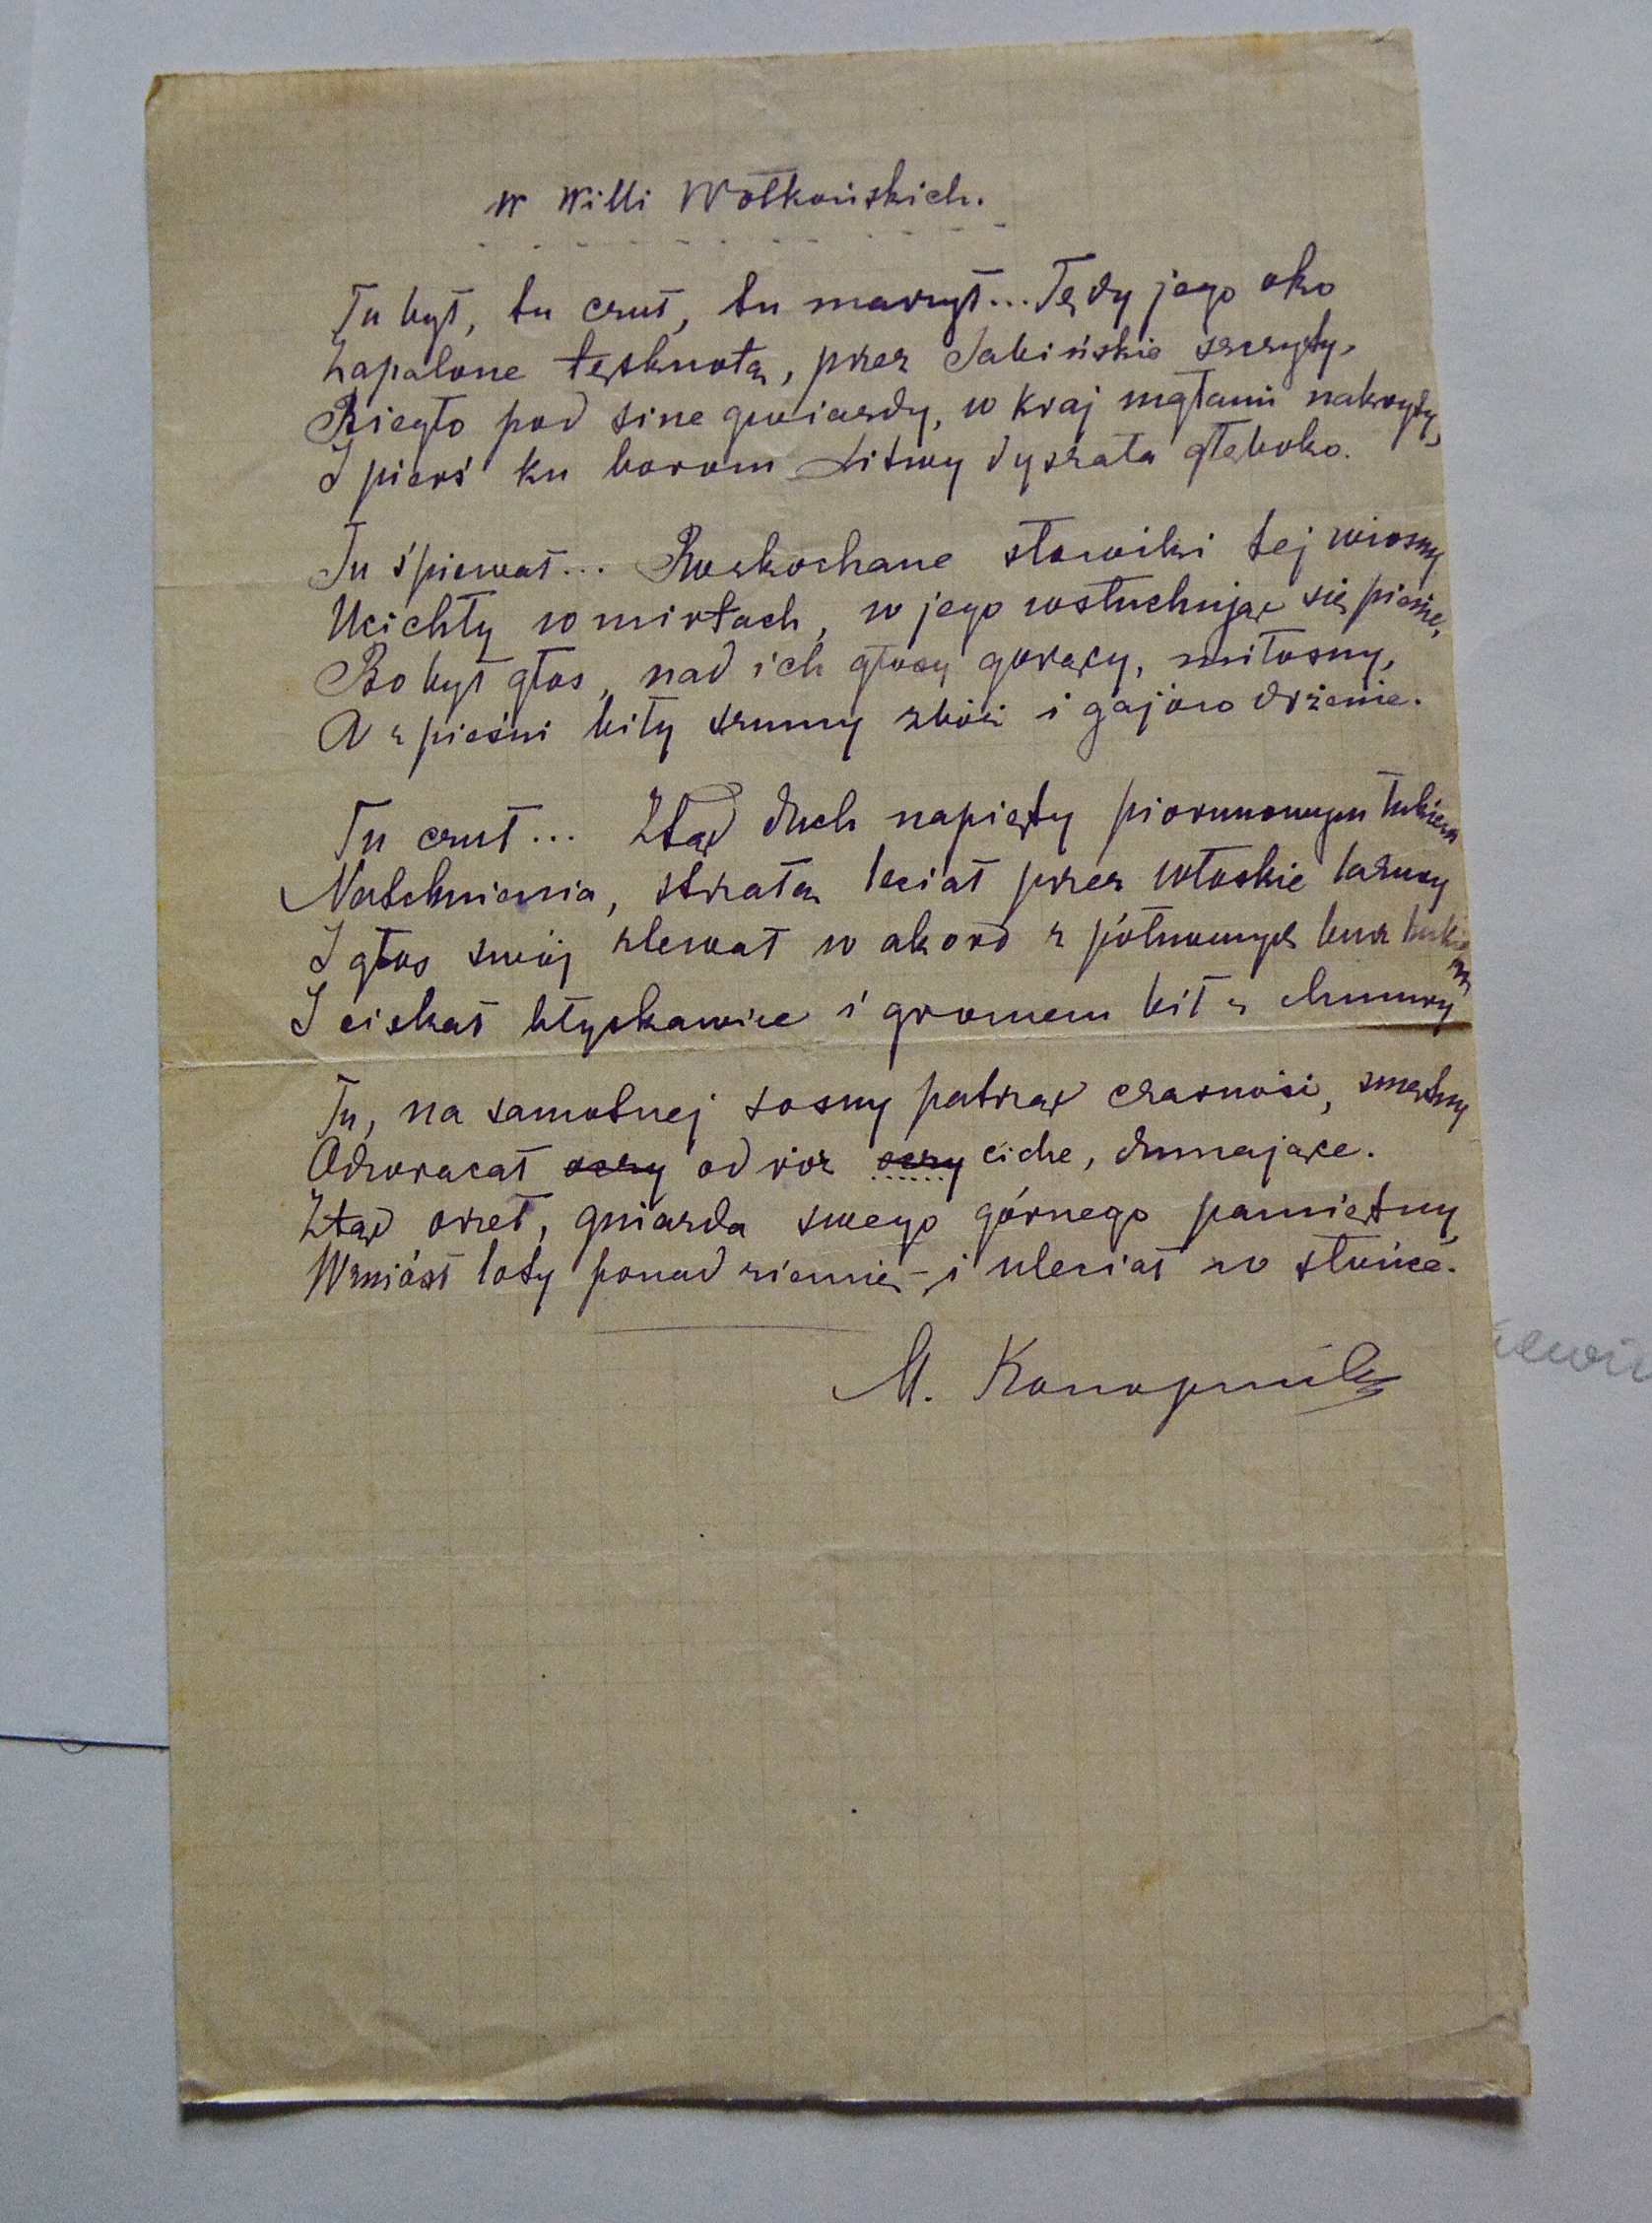 W Willi Wołkońskich.
Tu był, tu czuł, tu marzył... Tędy jego oko
Zapalone tęsknotą, przez Sabińskie szczyty,
Biegło pod sine gwiazdy, w kraj mgłami nakryty,
I pierś ku borom Litwy dyszała głęboko.
Tu śpiewał... Rozkochane słowiki tej wiosny
Ucichły w mirtach, w jego wsłuchując się pieśnie,
Bo był głos, nad ich głosy gorący, miłosny,
A z pieśni biły szumy zbóż i gajów drżenie.
Tu czuł... Ztąd duch napięty piorunowym łukiem
Natchnienia, strzałą leciał przez włoskie lazury
I głos swój zlewał w akord z północnych burz hukiem
I ciskał błyskawice i gromem bił z chmury
Tu, na samotnej sosny patrząc czarność, smętny
Odwracał oczy od róż oczy ciche, dumające.
Ztąd orzeł, gniazda swego górnego pamiętny,
Wzniósł loty ponad ziemię - i uleciał w słońce.
M. Konopnicka